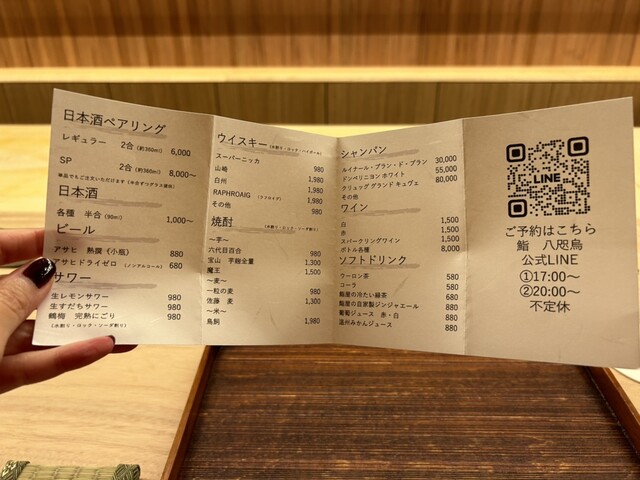 日本酒ペアリング
レギュラー 2合(約360ml) 6,000
SP 2合(約360ml) 8,000〜
単品でもご注文いただけます
日本酒
各種 半合(90ml) 1,000〜
ビール
アサヒ 熱撰(小瓶) 880
アサヒドライゼロ (ノンアルコール) 680
サワー
生レモンサワー 980
生すだちサワー 980
鶴梅 完熟にごり 980
(水割り・ロック・ソーダ割り)
ウイスキー(水割り・ロック・ハイボール)
スーパーニッカ 980
山崎 1,980
白州 1,980
RAPHROAIG 1,980
その他 980
焼酎 (水割り・ロック・ソーダ割り)
〜芋〜
六代目百合 980
宝山 芋麹全量 1,300
魔王 1,500
〜麦〜
一粒の麦 980
佐藤 麦 1,300
〜米〜
鳥飼 1,980
シャンパン
ルイナール・ブラン・ド・ブラン 30,000
ドンペリニヨン ホワイト 55,000
クリュッグ グランド キュヴェ 80,000
その他
ワイン
白 1,500
赤 1,500
スパークリングワイン 1,500
ボトル各種 8,000
ソフトドリンク
ウーロン茶 580
コーラ 580
麹屋の冷たい緑茶 680
麹屋の自家製ジンジャエール 880
葡萄ジュース 赤・白 880
温州みかんジュース 880
LINE
ご予約はこちら
鮨 八咫烏
公式LINE
①17:00〜
②20:00〜
不定休